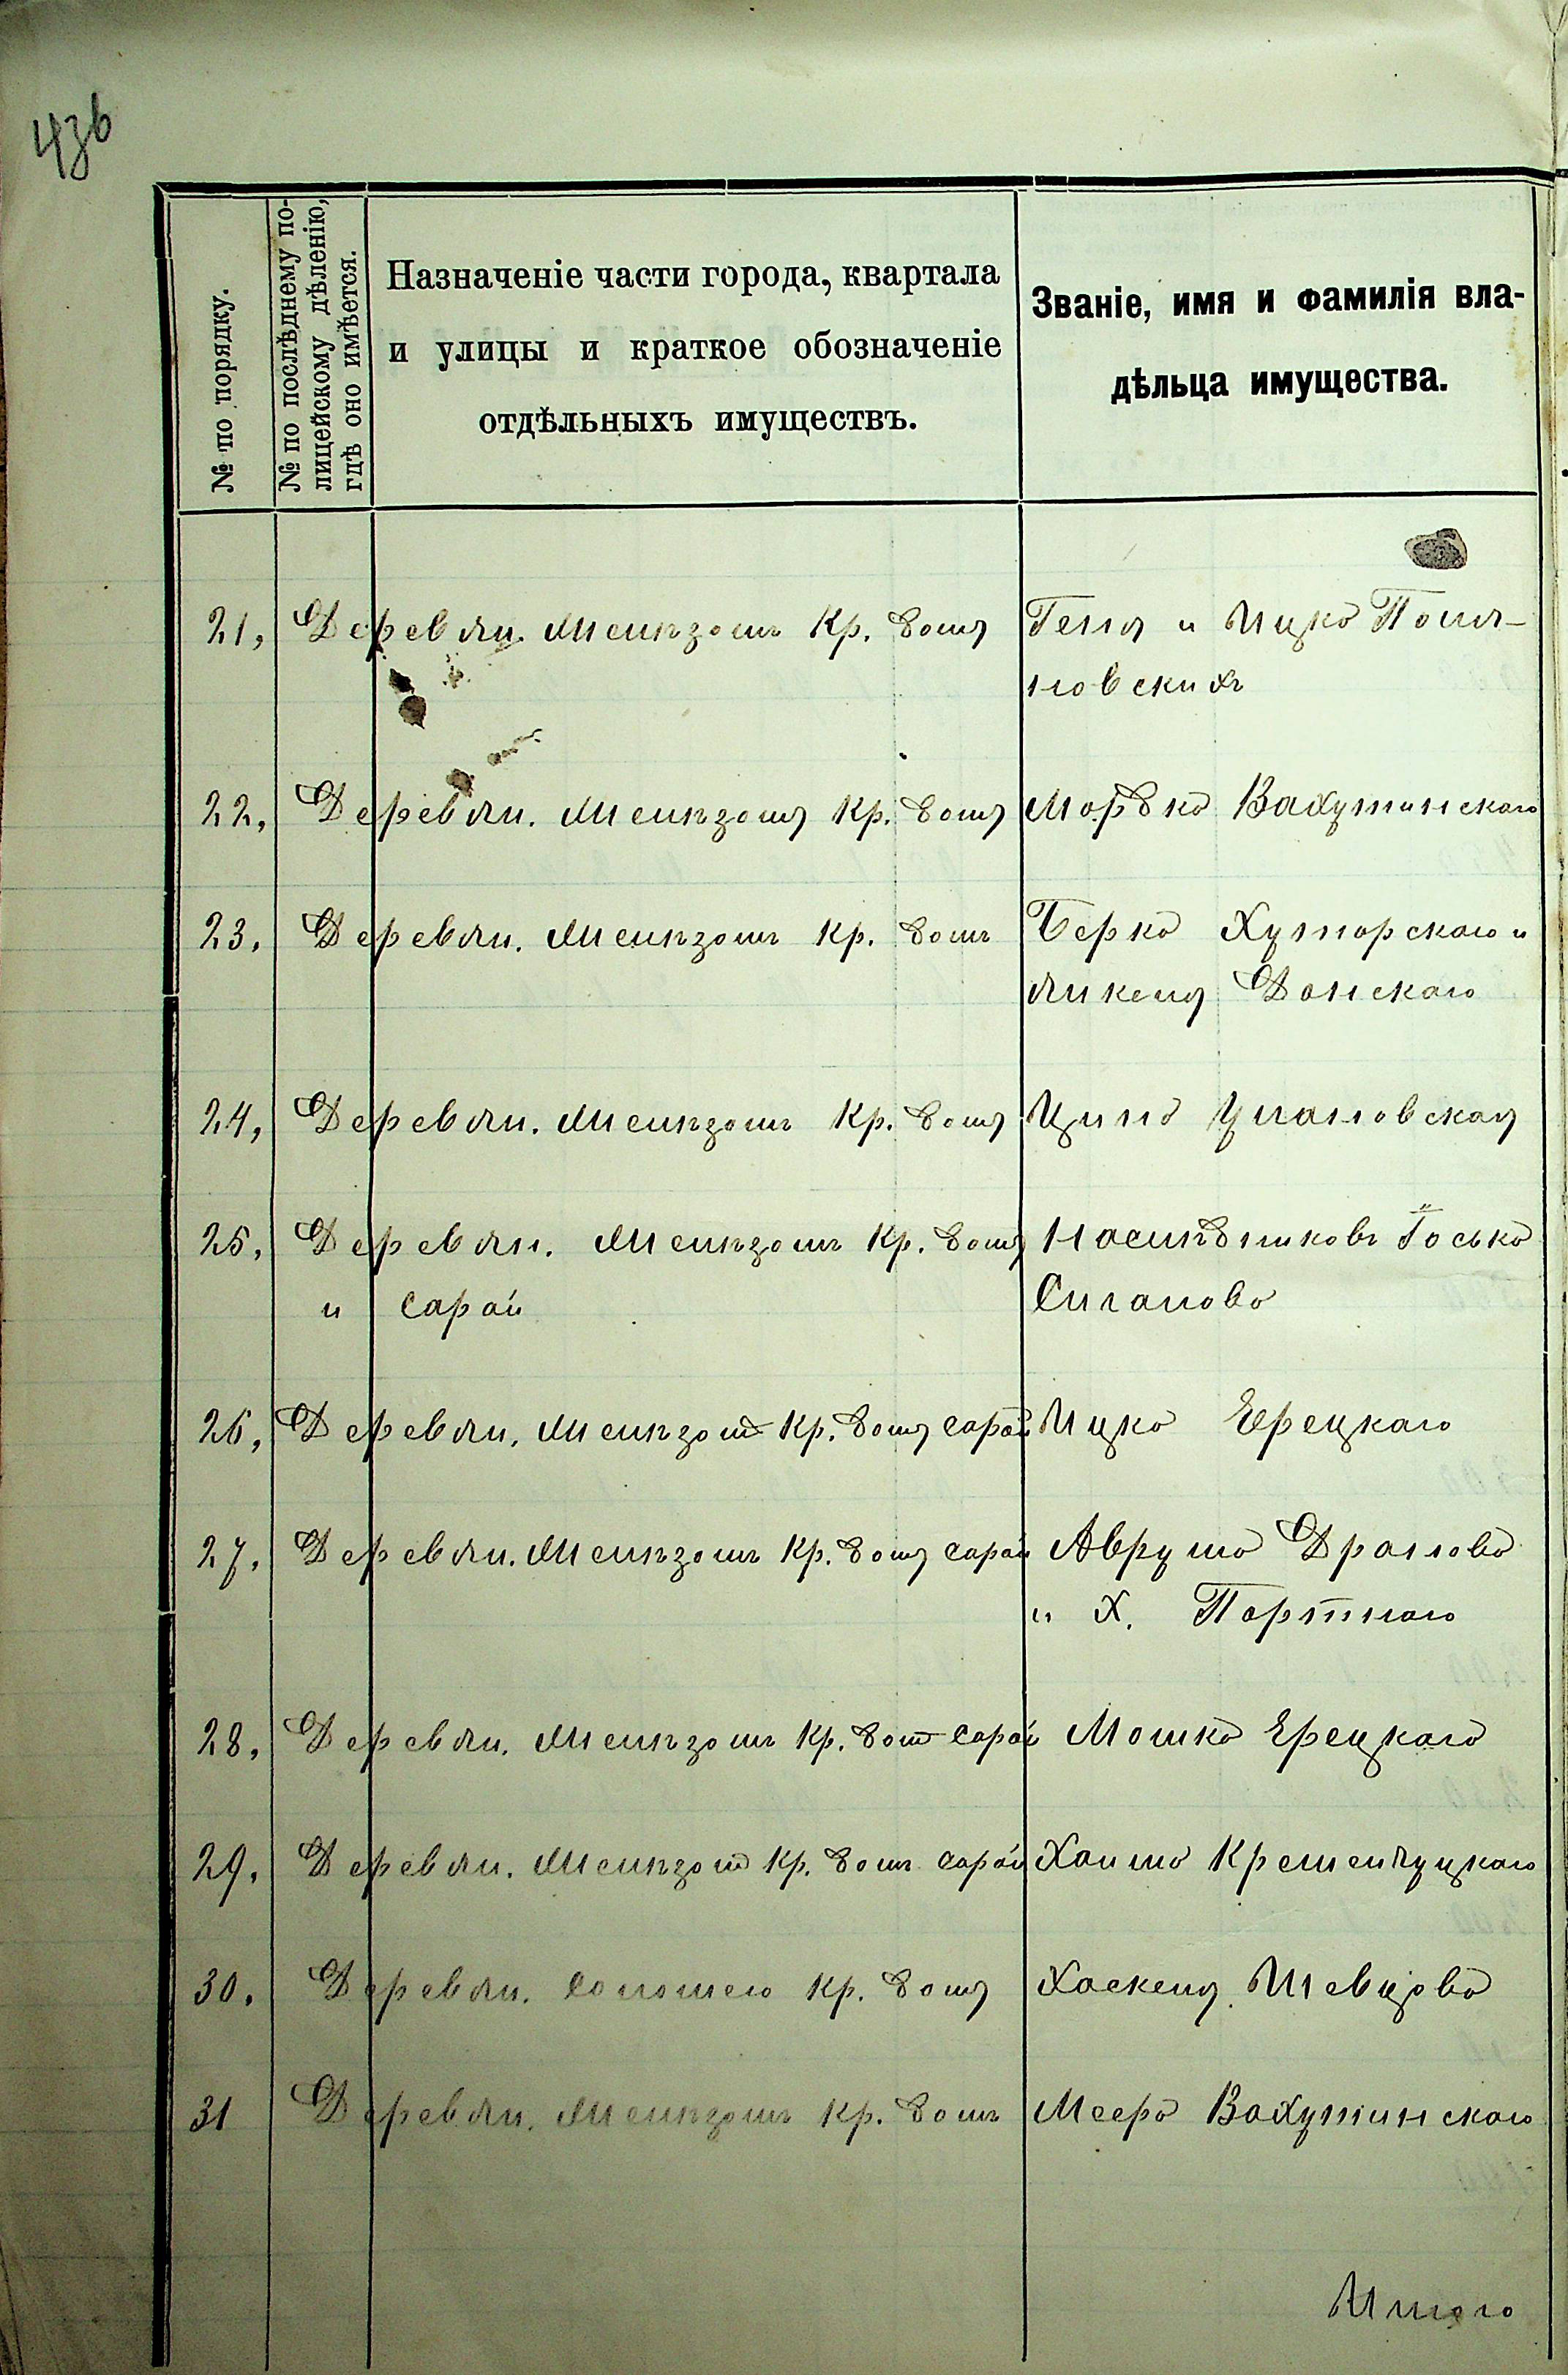 436
№ по порядку.
№ по послѣднему по-
лицейскому дѣленію,
гдѣ оно имѣется.
Назначеніе части города, квартала
и улицы и краткое обозначеніе
отдѣльныхъ имуществъ.
Званіе, имя и фамилія вла-
дѣльца имущества.
21, Деревян. желѣзом кр. домъ Геля и Ицко Поля-
новскихъ
22, Деревян. желѣзомъ кр. домъ Мордко Вахутинскаго
23. Деревян. желѣзом кр. дом Берко Хуторскаго и
Янкель Донскаго
24, Деревян. желѣзом кр. домъ
25, Деревян. желѣзом кр. домъ Наслѣдниковъ Іосько
и сарай
26, Деревян. желѣзом кр. домъ сарай Ицко Ерецкаго
27. Деревян. желѣзом кр. домъ сарай Аврума
и Х. Портного
28, Деревян. желѣзом кр. дом сарай Мошко Ерецкаго
29. Деревян. желѣзом кр. дом сарай Хаима Кременчуцкаго
30. Деревян. соломою кр. домъ Хаскель Шевцова
31 Деревян. желѣзом кр. дом Меера Вахутинскаго
Итого